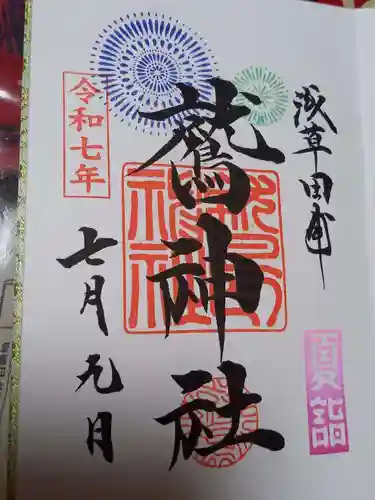 浅草田甫
鷲神社
夏詣
令和七年
七月九日